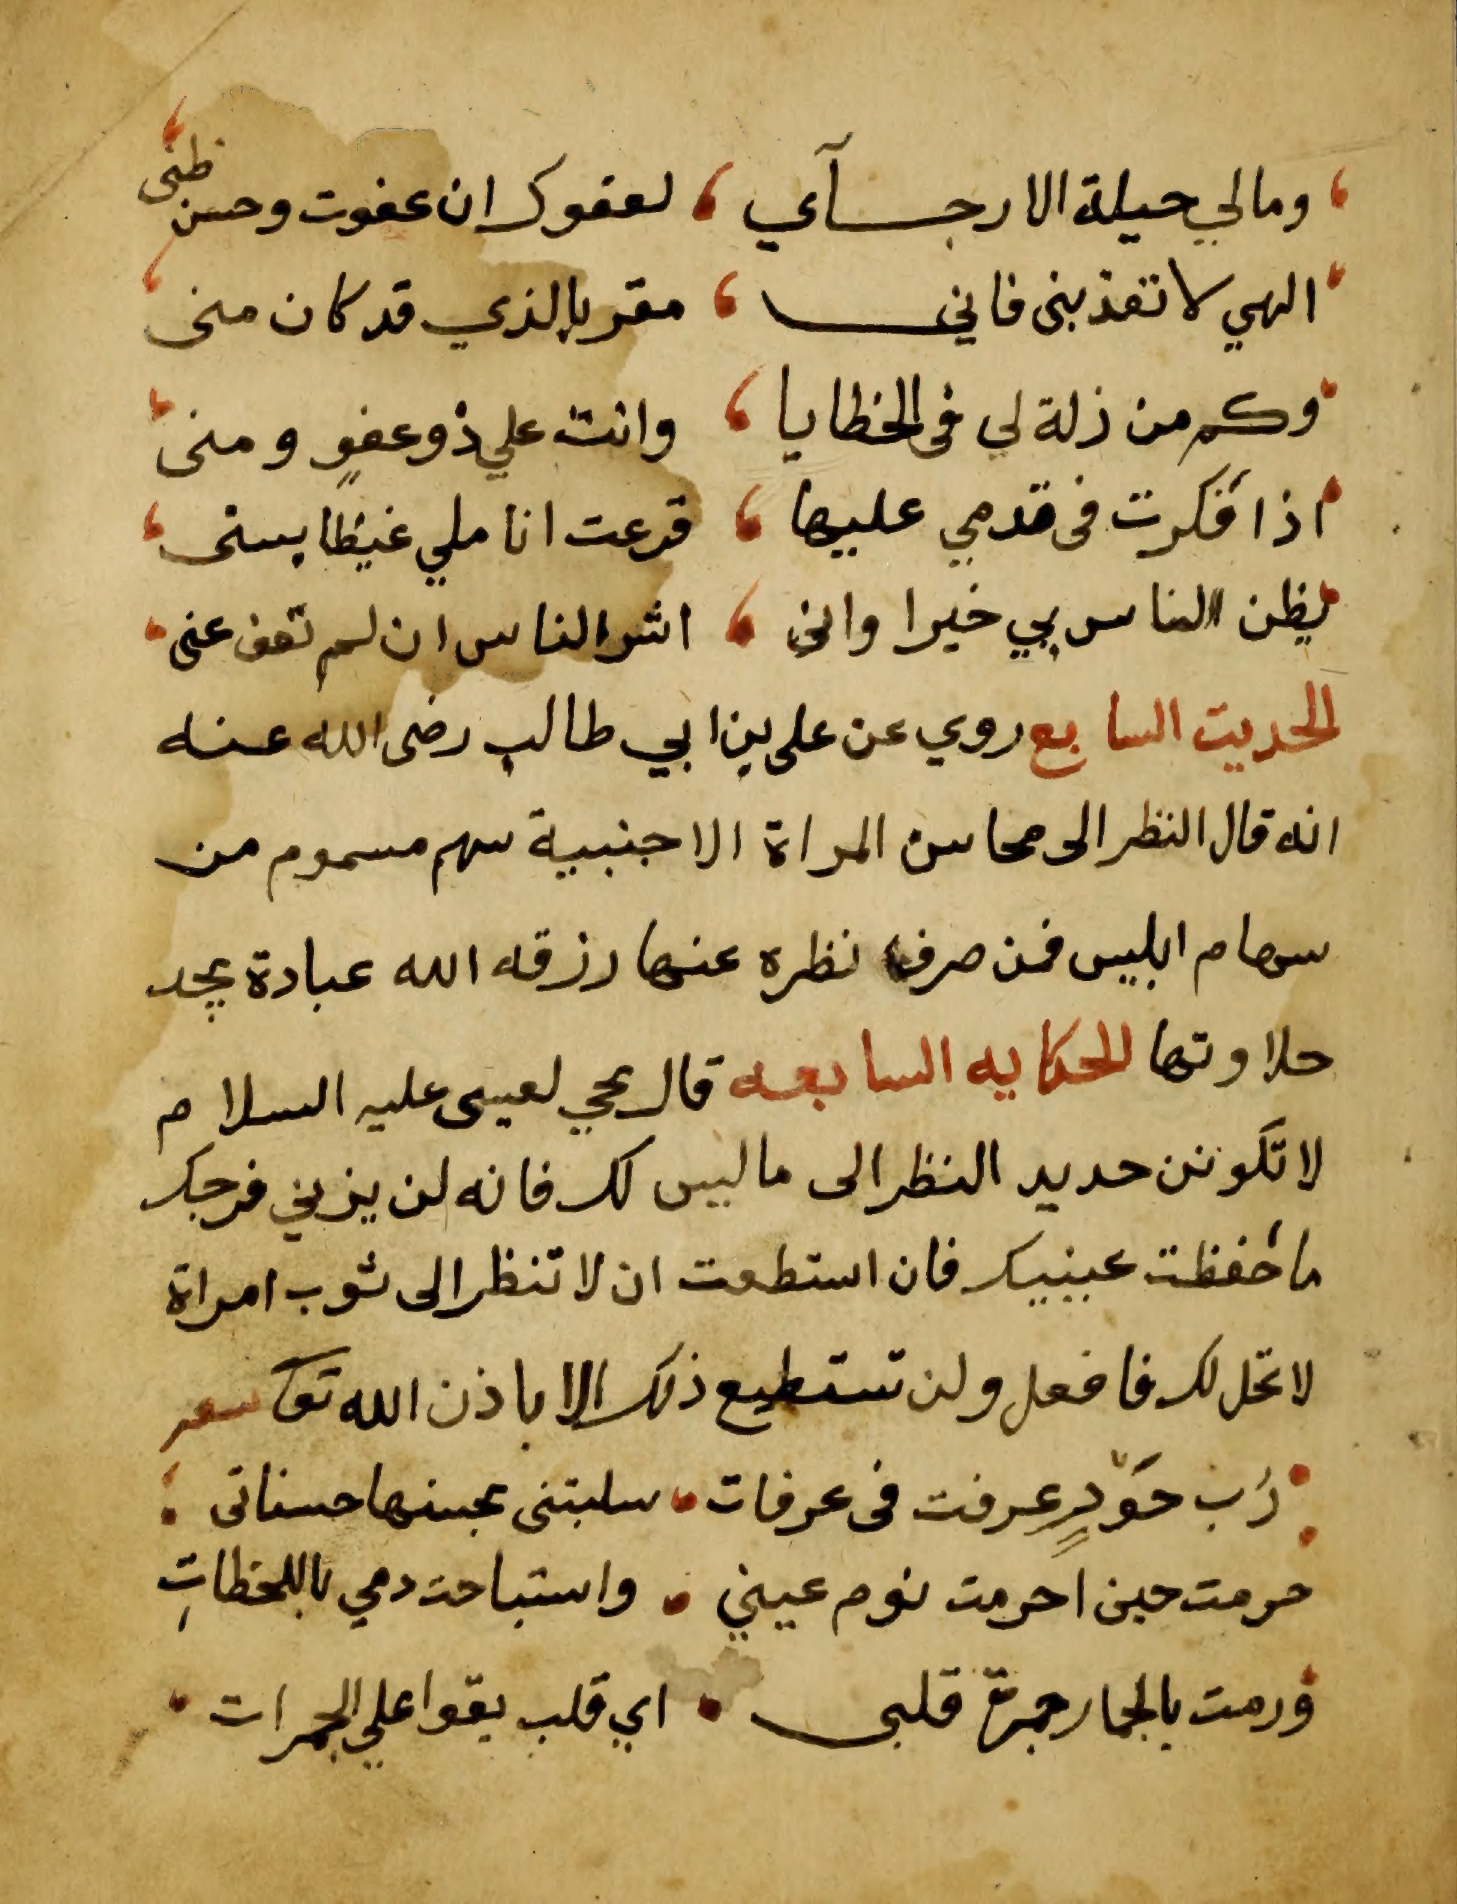 ومالي حيلة الا رجآي لعفوك ان عفوت وحسن ظنى
الهي لا تعذبنى فاني مقر بالذي قد كان منى
وكم من زلة لي فى الخطايا وانت علي ذو عفوٍ ومنى
اذا فكرت فى قدمي عليها قرعت اناملي غيظا بسنى
يظن الناس بي خيرا وانى اشر الناس ان لم تعف عنى
الحديت السابع روي عن على بن ابي طالب رضى الله عنه
انه قال النظر الى محاسن المراة الاجنبية سهم مسموم من
سهام ابليس فمن صرف نظره عنها رزقه الله عبادة يجد
حلاوتها الحكايه السابعه قال يحي لعيسى عليه السلام
لا تكونن حديد النظر الى ما ليس لك فانه لن يزني فرجك
ما حفظت عينيك فان استطعت ان لا تنظر الى ثوب امراة
لا تحل لك فافعل ولن تستطيع ذلك الا باذن الله تعا شعر
رُب خَوْدٍ عرفت فى عرفات سلبتنى بحسنها حسناتى
حرمت حين احرمت نوم عيني واستباحت دمي باللحظاتِ
ورمت بالجمار جمرة قلبى اي قلب يقوا علي الجمرات